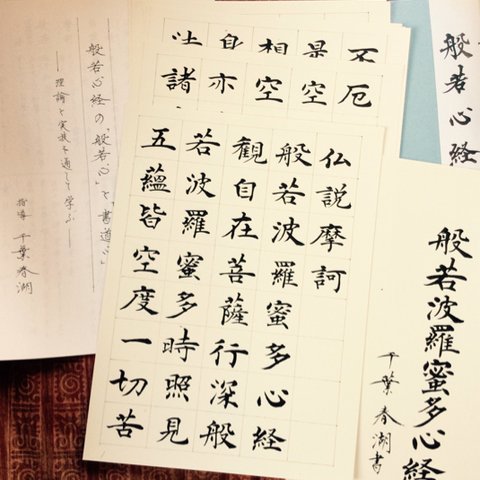 般若心経
般若波羅蜜多心経
千葉春湖書
厄
空
空
亦
諸
仏説摩訶
般若波羅蜜多心経
観自在菩薩行深般
若波羅蜜多時照見
五蘊皆空度一切苦
般若心経の"般若心"と"書道心"
―理論と実技を通して学ぶ―
指導 千葉春湖